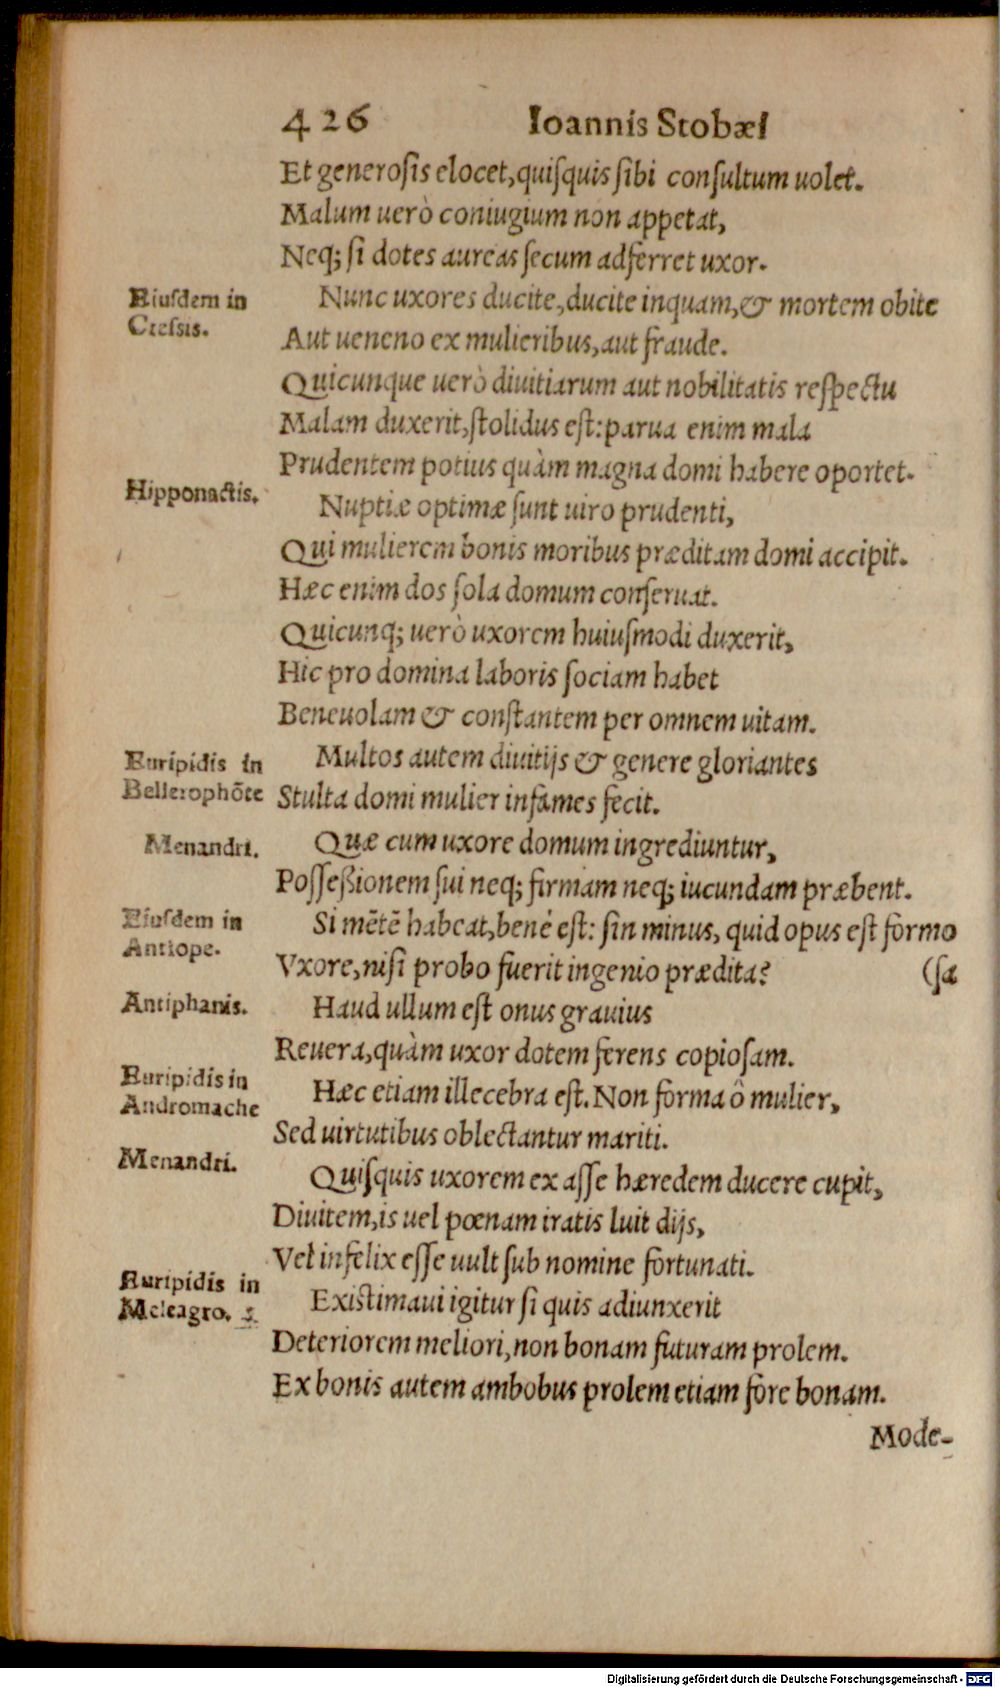 426 Ioannis Stobæi
Et generosis elocet, quisquis sibi consultum uolet.
Malum uerò coniugium non appetat,
Neq; si dotes aureas secum adferret uxor.
Eiusdem in
Cressis.
Nunc uxores ducite, ducite inquam, & mortem obite
Aut ueneno ex mulieribus, aut fraude.
Quicunque uerò diuitiarum aut nobilitatis respectu
Malam duxerit, stolidus est: parua enim mala
Prudentem potius quàm magna domi habere oportet.
Hipponactis.
Nuptiæ optimæ sunt uiro prudenti,
Qui mulierem bonis moribus præditam domi accipit.
Hæc enim dos sola domum conseruat.
Quicunq; uerò uxorem huiusmodi duxerit,
Hic pro domina laboris sociam habet
Beneuolam & constantem per omnem uitam.
Euripidis in
Bellerophōte
Multos autem diuitijs & genere gloriantes
Stulta domi mulier infames fecit.
Menandri.
Quæ cum uxore domum ingrediuntur,
Possessionem sui neq; firmam neq; iucundam præbent.
Eiusdem in
Antiope.
Si mētē habeat, bene est: sin minus, quid opus est formo
Vxore, nisi probo fuerit ingenio prædita? (sa
Antiphanis.
Haud ullum est onus grauius
Reuera, quàm uxor dotem ferens copiosam.
Euripidis in
Andromache
Hæc etiam illecebra est. Non forma ô mulier,
Sed uirtutibus oblectantur mariti.
Menandri.
Quisquis uxorem ex asse hæredem ducere cupit,
Diuitem, is uel pœnam iratis luit dijs,
Vel infelix esse uult sub nomine fortunati.
Euripidis in
Meleagro. 5.
Existimaui igitur si quis adiunxerit
Deteriorem meliori, non bonam futuram prolem.
Ex bonis autem ambobus prolem etiam fore bonam.
Mode-
Digitalisierung gefördert durch die Deutsche Forschungsgemeinschaft - DFG